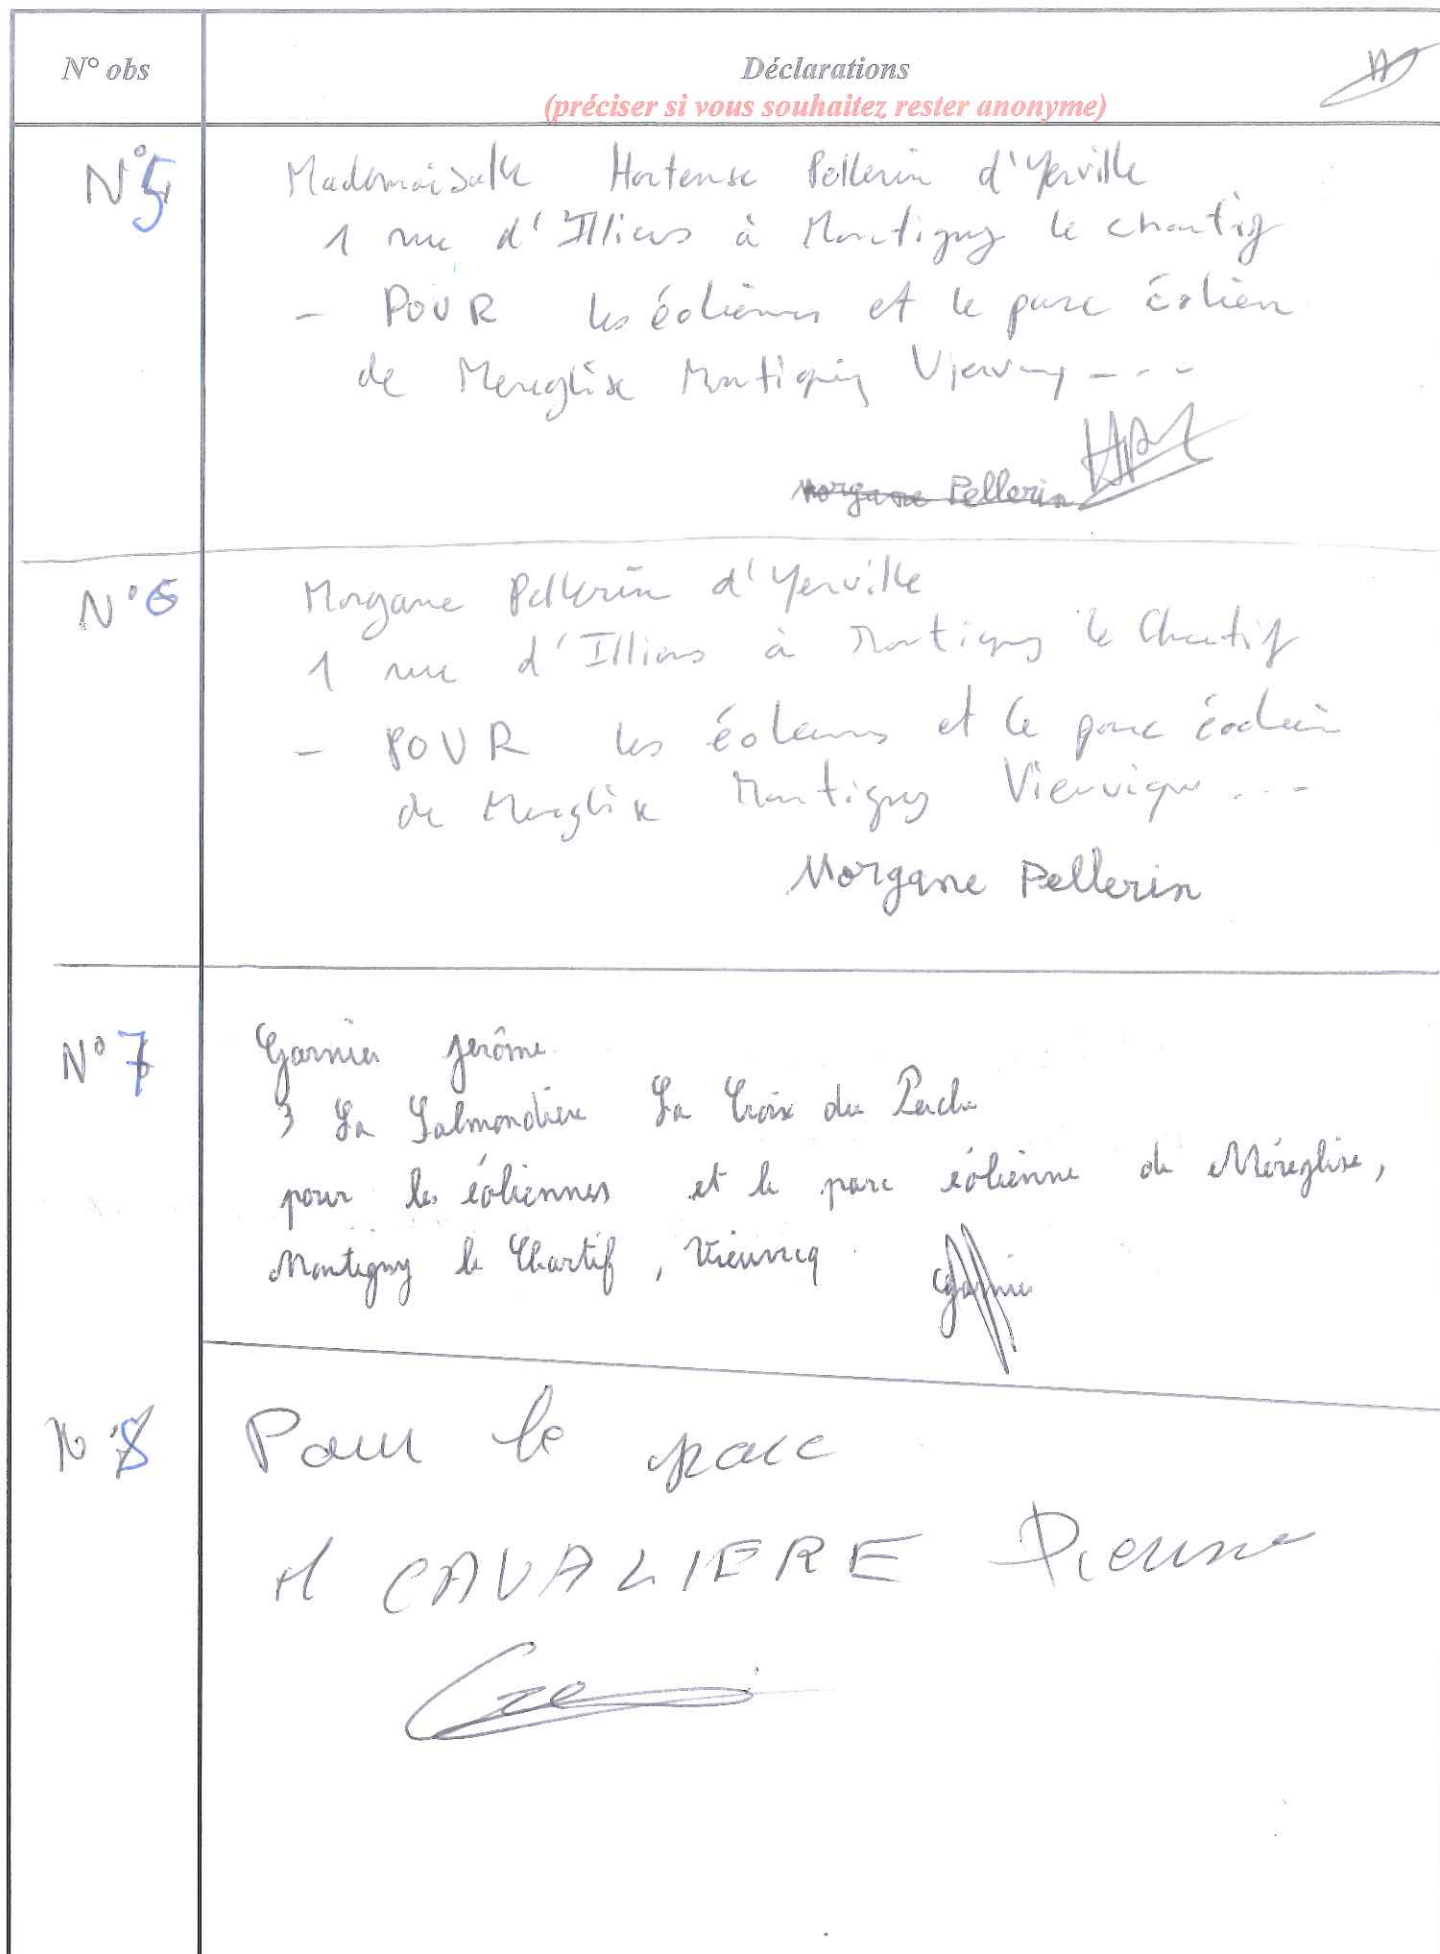 N° obs
Déclarations
(préciser si vous souhaitez rester anonyme)
N°5
Mademoiselle Hortense Pellerin d'Yerville
1 rue d'Illiers à Montigny le chartif
- POUR les éoliennes et le parc éolien
de Mereglise Montigny
Morgane Pellerin
N°6
Morgane Pellerin d'Yerville
1 rue d'Illiers à Montigny le Chartif
- POUR les éoliennes et le parc éolien
de Mereglise Montigny Vieuvicq ...
Morgane Pellerin
N° 7
Garnier Jerôme
3 La Salmondière La Croix du Perche
pour les éoliennes et le parc éolienne de Méréglise,
Montigny le Chartif, Vieuvicq
Garnier
N° 8
Pour le parc
M CAVALIERE Pierre